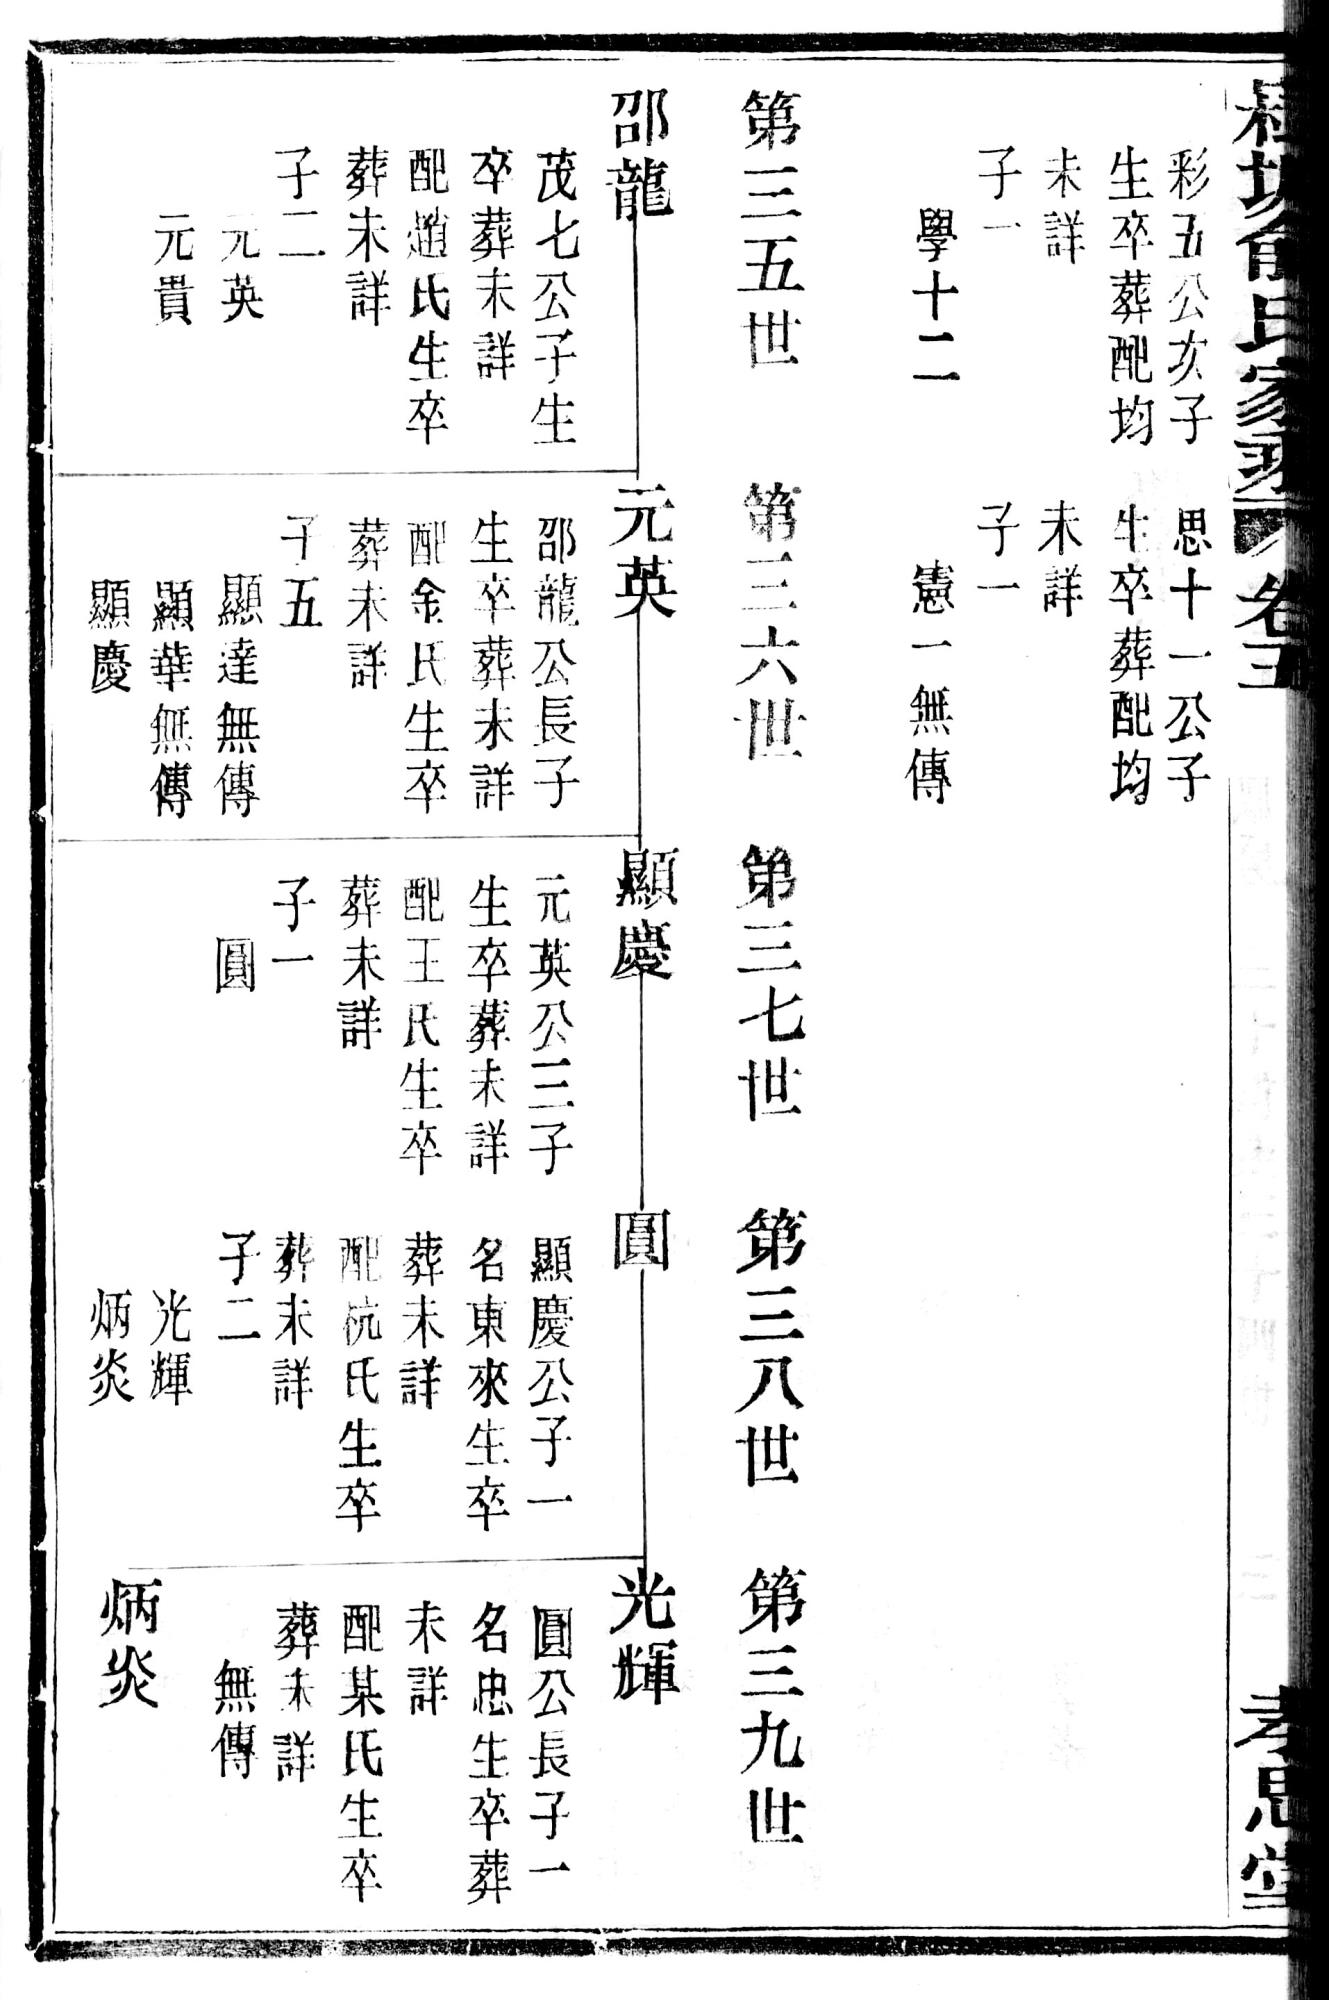 俞氏家乘 卷五
孝思堂
彩五公次子
生卒葬配均
未詳
子一
學十二
思十一公子
生卒葬配均
未詳
子一
憲一無傳
第三五世
第三六世
第三七世
第三八世
第三九世
邵龍
茂七公子生
卒葬未詳
配趙氏生卒
葬未詳
子二
元英
元貴
元英
邵龍公長子
生卒葬未詳
配金氏生卒
葬未詳
子五
顯達無傳
顯華無傳
顯慶
顯慶
元英公三子
生卒葬未詳
配王氏生卒
葬未詳
子一
圓
圓
顯慶公子一
名東來生卒
葬未詳
配杭氏生卒
葬未詳
子二
光輝
炳炎
光輝
圓公長子一
名忠生卒葬
未詳
配某氏生卒
葬未詳
無傳
炳炎